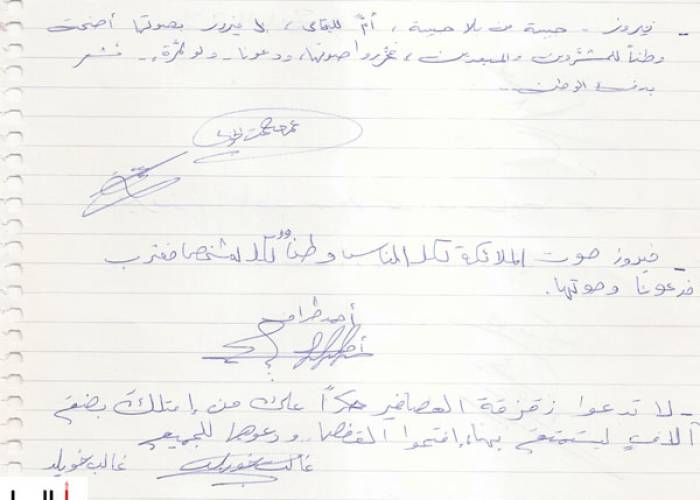 - فيروز - حبيبة من بلا حبيبة، أمٌ لليتامى، لا فيروز بصوتها أضحت
وطناً للمشرّدين والمبعدين، حرّروا صوتها، ودعونا - ولو لمرّة - نشعر
بدفء الوطن..
- فيروز صوت الملائكة لكل الناس وطناً لكل شخص مغترب
فدعونا وصوتها.
أحمد طراف
- لا تدعوا زقزقة العصافير حكراً على من إمتلك بضع
آلافٍ ليستمتع بها، إفتحوا القفص ودعوها للجميع
غالب خويلد غالب خويلد